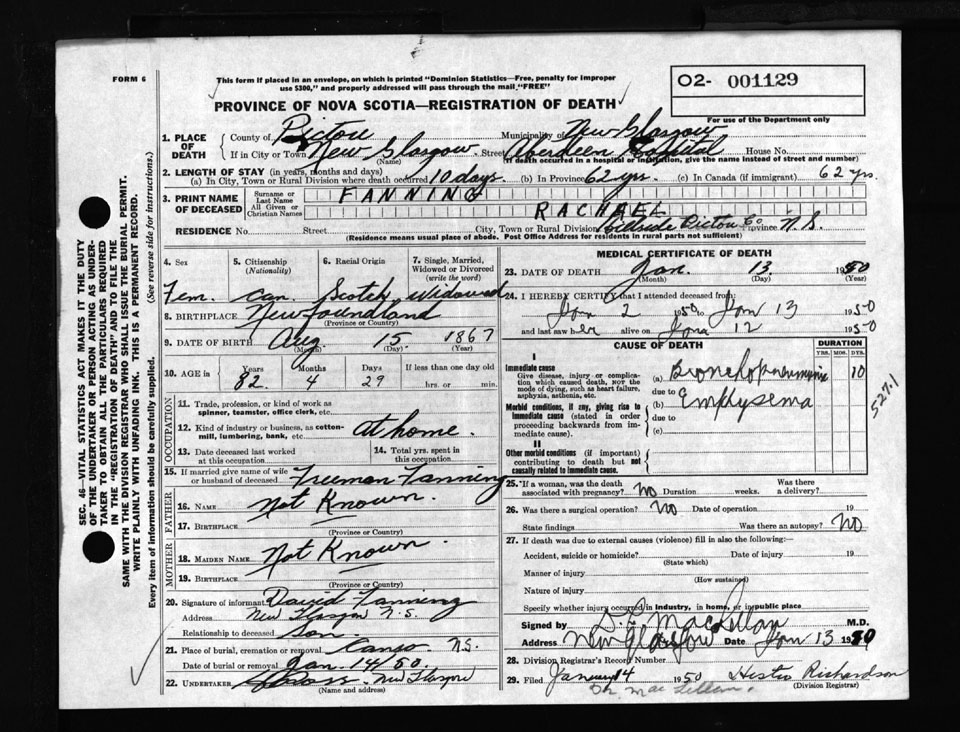 FORM 6
This form if placed in an envelope, on which is printed "Dominion Statistics—Free, penalty for improper
use $300," and properly addressed will pass through the mail "FREE"
O2- 001129
For use of the Department only
PROVINCE OF NOVA SCOTIA—REGISTRATION OF DEATH
1. PLACE OF DEATH
County of Pictou Municipality of New Glasgow
If in City or Town New Glasgow. Street Aberdeen Hospital House No.
(Name) (If death occurred in a hospital or institution, give the name instead of street and number)
2. LENGTH OF STAY (in years, months and days)
(a) In City, Town or Rural Division where death occurred 10 days. (b) In Province 62 yrs. (c) In Canada (if immigrant) 62 yrs.
3. PRINT NAME OF DECEASED
Surname or Last Name FANNING
All Given or Christian Names RACHAEL
RESIDENCE No. Street City, Town or Rural Division Hillside Pictou Co Province N.S.
(Residence means usual place of abode. Post Office Address for residents in rural parts not sufficient)
4. Sex 5. Citizenship (Nationality) 6. Racial Origin 7. Single, Married, Widowed or Divorced (write the word)
Fem. Can. Scotch Widowed
8. BIRTHPLACE Newfoundland
(Province or Country)
9. DATE OF BIRTH Aug. 15. 1867
(Month) (Day) (Year)
10. AGE in Years Months Days If less than one day old
82 4 29 hrs. or min.
OCCUPATION
11. Trade, profession, or kind of work as
spinner, teamster, office clerk, etc.
12. Kind of industry or business, as cotton-
mill, lumbering, bank, etc. at home.
13. Date deceased last worked
at this occupation
14. Total yrs. spent in
this occupation
15. If married give name of wife
or husband of deceased Freeman Fanning
FATHER
16. Name Not Known.
17. Birthplace
MOTHER
18. Maiden Name Not Known.
19. Birthplace
(Province or Country)
20. Signature of informant David Fanning
Address New Glasgow N.S.
Relationship to deceased Son.
21. Place of burial, cremation or removal Canso N.S.
Date of burial or removal Jan. 14/50.
22. UNDERTAKER Ross. New Glasgow
(Name and address)
MEDICAL CERTIFICATE OF DEATH
23. DATE OF DEATH Jan. 13. 1950
(Month) (Day) (Year)
24. I HEREBY CERTIFY that I attended deceased from:
Jan 2 1950 to Jan 13 1950
and last saw her alive on Jan 12 1950
CAUSE OF DEATH
DURATION
YRS. MOS. DYS.
I
Immediate cause
Give disease, injury or compli-
cation which caused death, NOT the
mode of dying, such as heart failure,
asphyxia, asthenia, etc.
(a) Bronchopneumonia 10
due to
Morbid conditions, if any, giving rise to
immediate cause (stated in order
proceeding backwards from im-
mediate cause).
(b) Emphysema
due to
(c)
527.1
II
Other morbid conditions (if important)
contributing to death but not
causally related to immediate cause.
25. If a woman, was the death
associated with pregnancy? No Duration weeks. Was there
a delivery?
26. Was there a surgical operation? No Date of operation 19
State findings Was there an autopsy? No
27. If death was due to external causes (violence) fill in also the following:—
Accident, suicide or homicide? Date of injury 19
(State which)
Manner of injury
(How sustained)
Nature of injury
Specify whether injury occurred in industry, in home, or in public place
Signed by MacLellan M.D.
Address New Glasgow Date Jan 13 1950
28. Division Registrar's Record Number
29. Filed January 14 1950 Richardson
(Division Registrar)
Dr. MacLellan.
SEC. 46—VITAL STATISTICS ACT MAKES IT THE DUTY
OF THE UNDERTAKER OR PERSON ACTING AS UNDER-
TAKER TO OBTAIN ALL THE PARTICULARS REQUIRED
IN THE "REGISTRATION OF DEATH" AND TO FILE THE
SAME WITH THE DIVISION REGISTRAR WHO SHALL ISSUE THE BURIAL PERMIT.
WRITE PLAINLY WITH UNFADING INK. THIS IS A PERMANENT RECORD.
Every item of information should be carefully supplied. (See reverse side for instructions.)